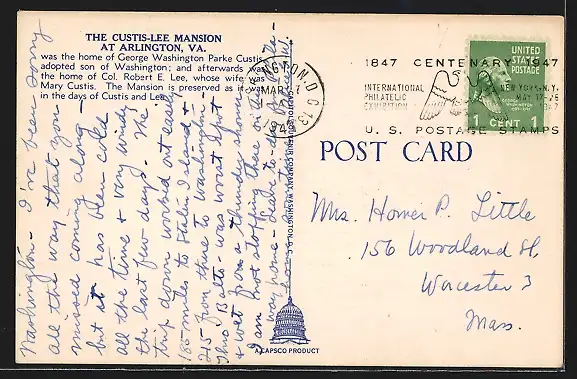 THE CUSTIS-LEE MANSION
AT ARLINGTON, VA.
was the home of George Washington Parke Custis,
adopted son of Washington; and afterwards was
the home of Col. Robert E. Lee, whose wife was
Mary Custis. The Mansion is preserved as it
in the days of Custis and Lee.
Washington - I've been sorry
all the way that you
missed coming along -
but it has been cold
all the time & very windy
the last few days. The
trip down worked out easily
185 miles to Staten Island &
215 from there to Washington -
Thro Balto - was worst spot
& wet from a thundershower
I am most stopping there
way home - Leave to-day
WASHINGTON, D.C. 13
MAR
1947
1847 CENTENARY 1947
INTERNATIONAL
PHILATELIC
EXHIBITION
NEW YORK, N.Y.
MAY 17-25
U. S. POSTAGE STAMPS
UNITED
STATES
POSTAGE
1 CENT 1
POST CARD
Mrs. Homer P. Little
156 Woodland St.
Worcester 3
Mass.
COMPANY, WASHINGTON, D. C.
A CAPSCO PRODUCT